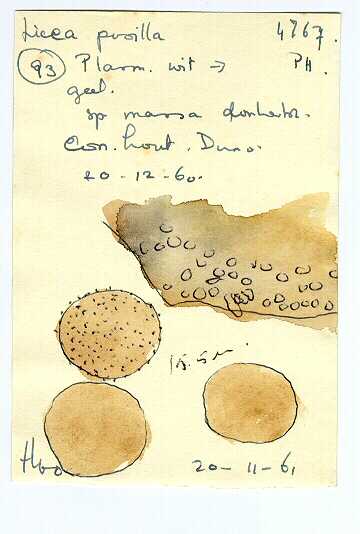 Licea pusilla 4767.
93 Plasm. wit → PH.
geel.
sp massa donker
Con. hout. Duno.
20-12-60.
15.5µ.
20-11-61